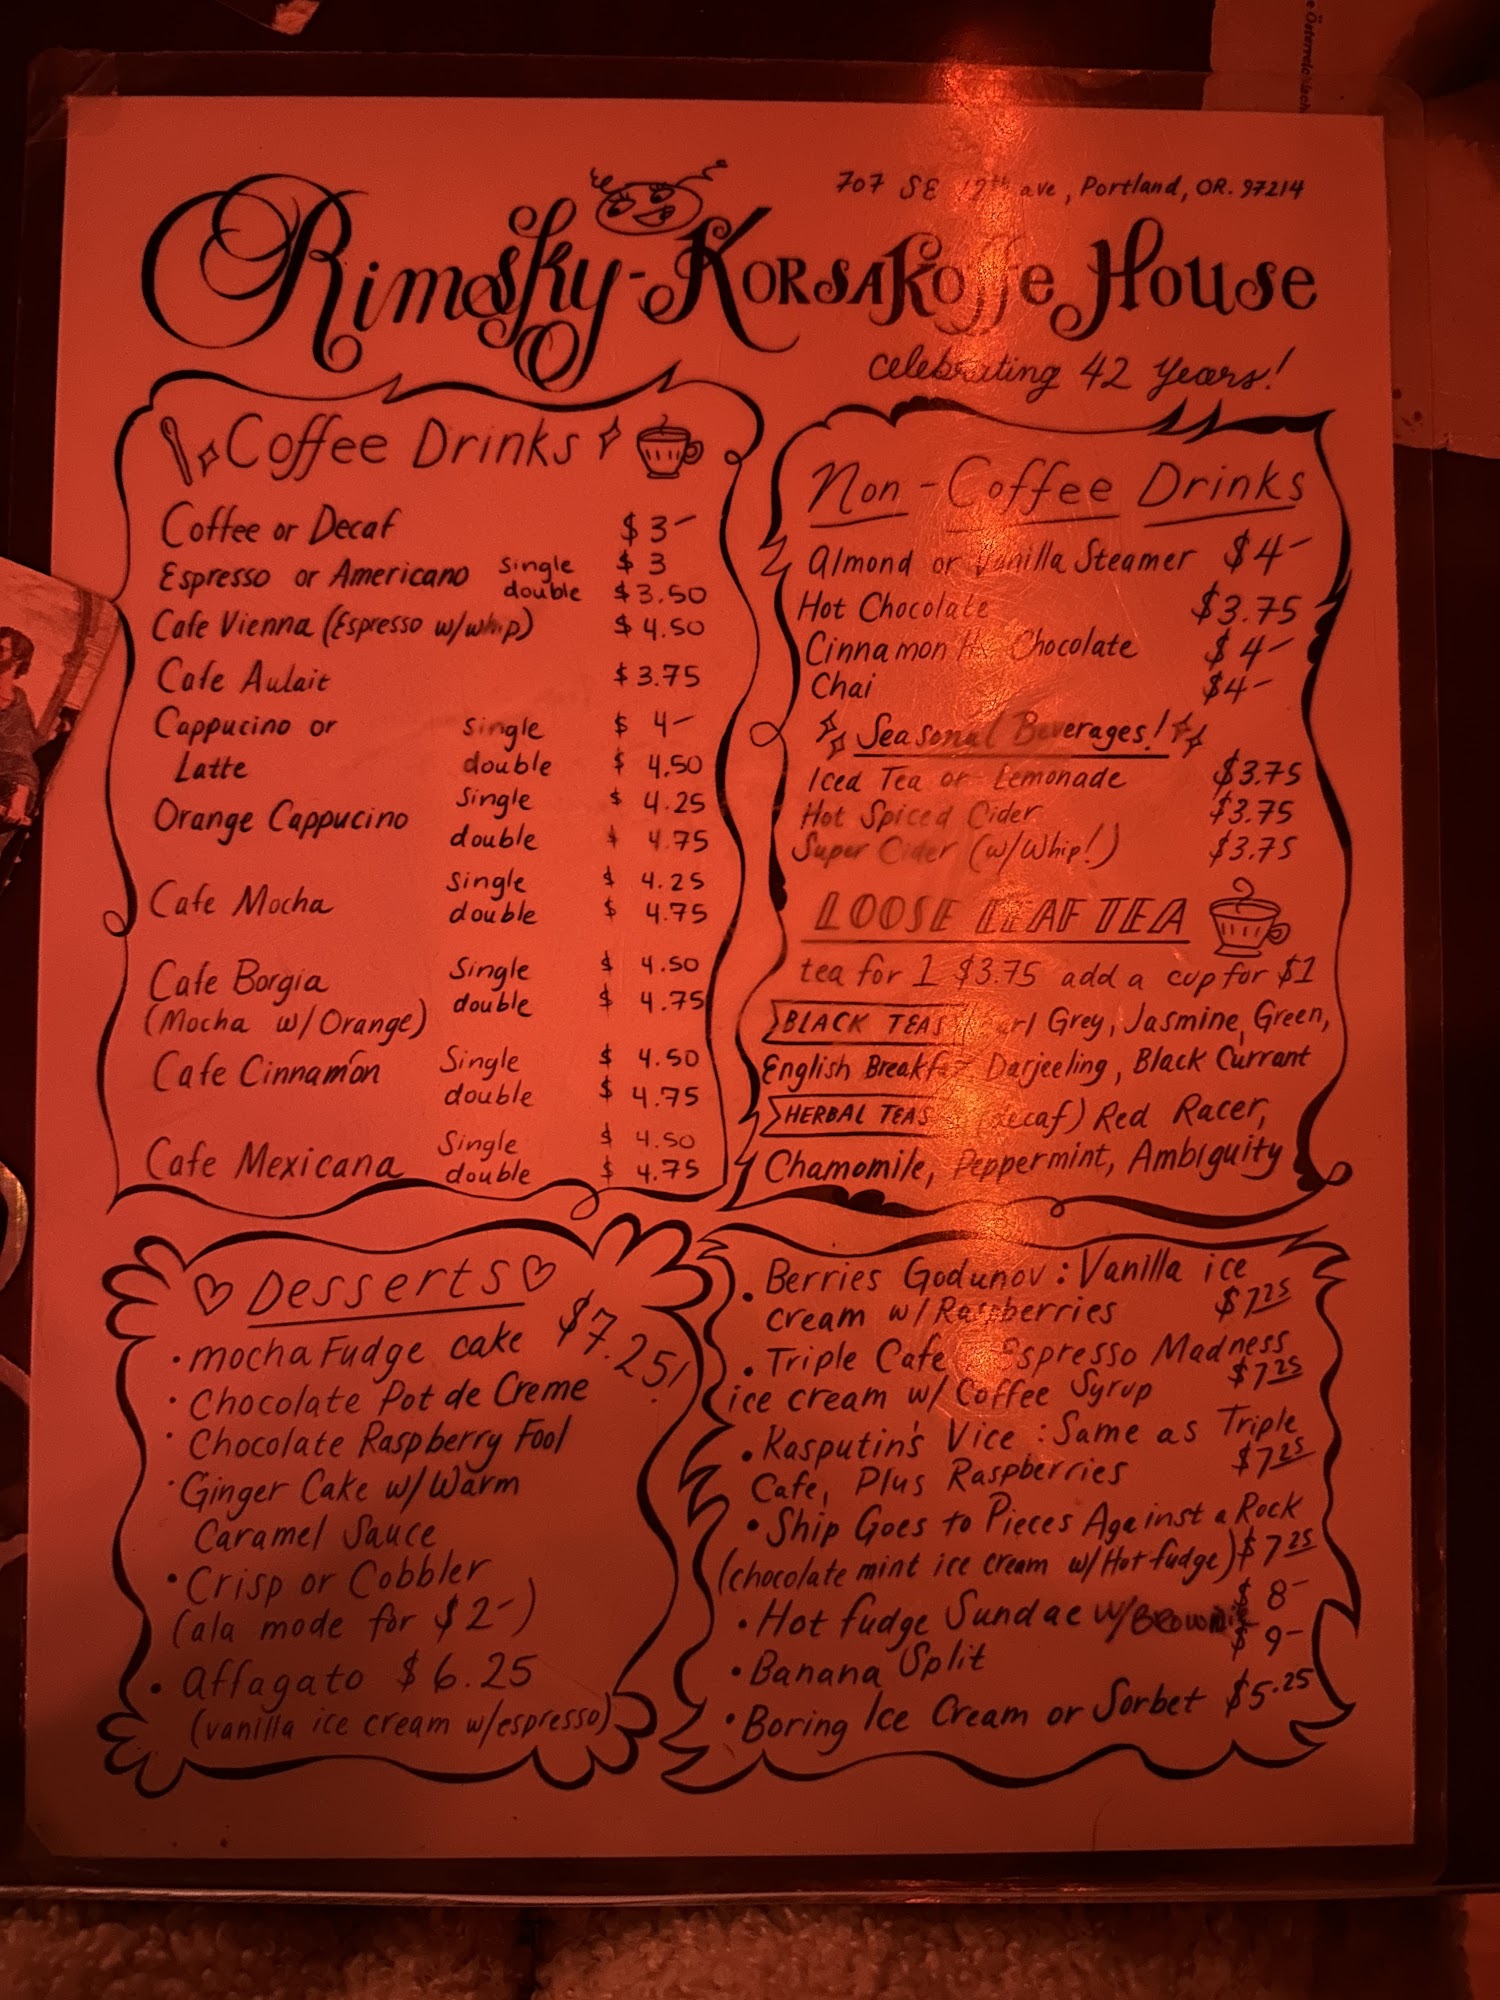 707 SE 12th ave, Portland, OR. 97214
Rimsky-Korsakoffee House
celebrating 42 years!
Coffee Drinks
Coffee or Decaf $3-
Espresso or Americano single $3
double $3.50
Cafe Vienna (Espresso w/whip) $4.50
Cafe Aulait $3.75
Cappucino or single $4-
Latte double $4.50
Orange Cappucino Single $4.25
double $4.75
Cafe Mocha Single $4.25
double $4.75
Cafe Borgia Single $4.50
(Mocha w/Orange) double $4.75
Cafe Cinnamon Single $4.50
double $4.75
Cafe Mexicana Single $4.50
double $4.75
Non-Coffee Drinks
Almond or Vanilla Steamer $4-
Hot Chocolate $3.75
Cinnamon Hot Chocolate $4-
Chai $4-
Seasonal Beverages!
Iced Tea or Lemonade $3.75
Hot Spiced Cider $3.75
Super Cider (w/Whip!) $3.75
LOOSE LEAF TEA
tea for 1 $3.75 add a cup for $1
BLACK TEAS Earl Grey, Jasmine, Green,
English Breakfast, Darjeeling, Black Currant
HERBAL TEAS (decaf) Red Racer,
Chamomile, Peppermint, Ambiguity
Desserts
$7.25!
• mocha Fudge cake
• Chocolate Pot de Creme
• Chocolate Raspberry Fool
• Ginger Cake w/Warm
Caramel Sauce
• Crisp or Cobbler
(ala mode for $2-)
• affagato $6.25
(vanilla ice cream w/espresso)
• Berries Godunov: Vanilla ice
cream w/Raspberries $7.25
• Triple Cafe Espresso Madness
ice cream w/Coffee Syrup $7.25
• Rasputin's Vice: Same as Triple
Cafe, Plus Raspberries $7.25
• Ship Goes to Pieces Against a Rock
(chocolate mint ice cream w/Hot fudge) $7.25
• Hot fudge Sundae w/Brownie $8-
• Banana Split $9-
• Boring Ice Cream or Sorbet $5.25